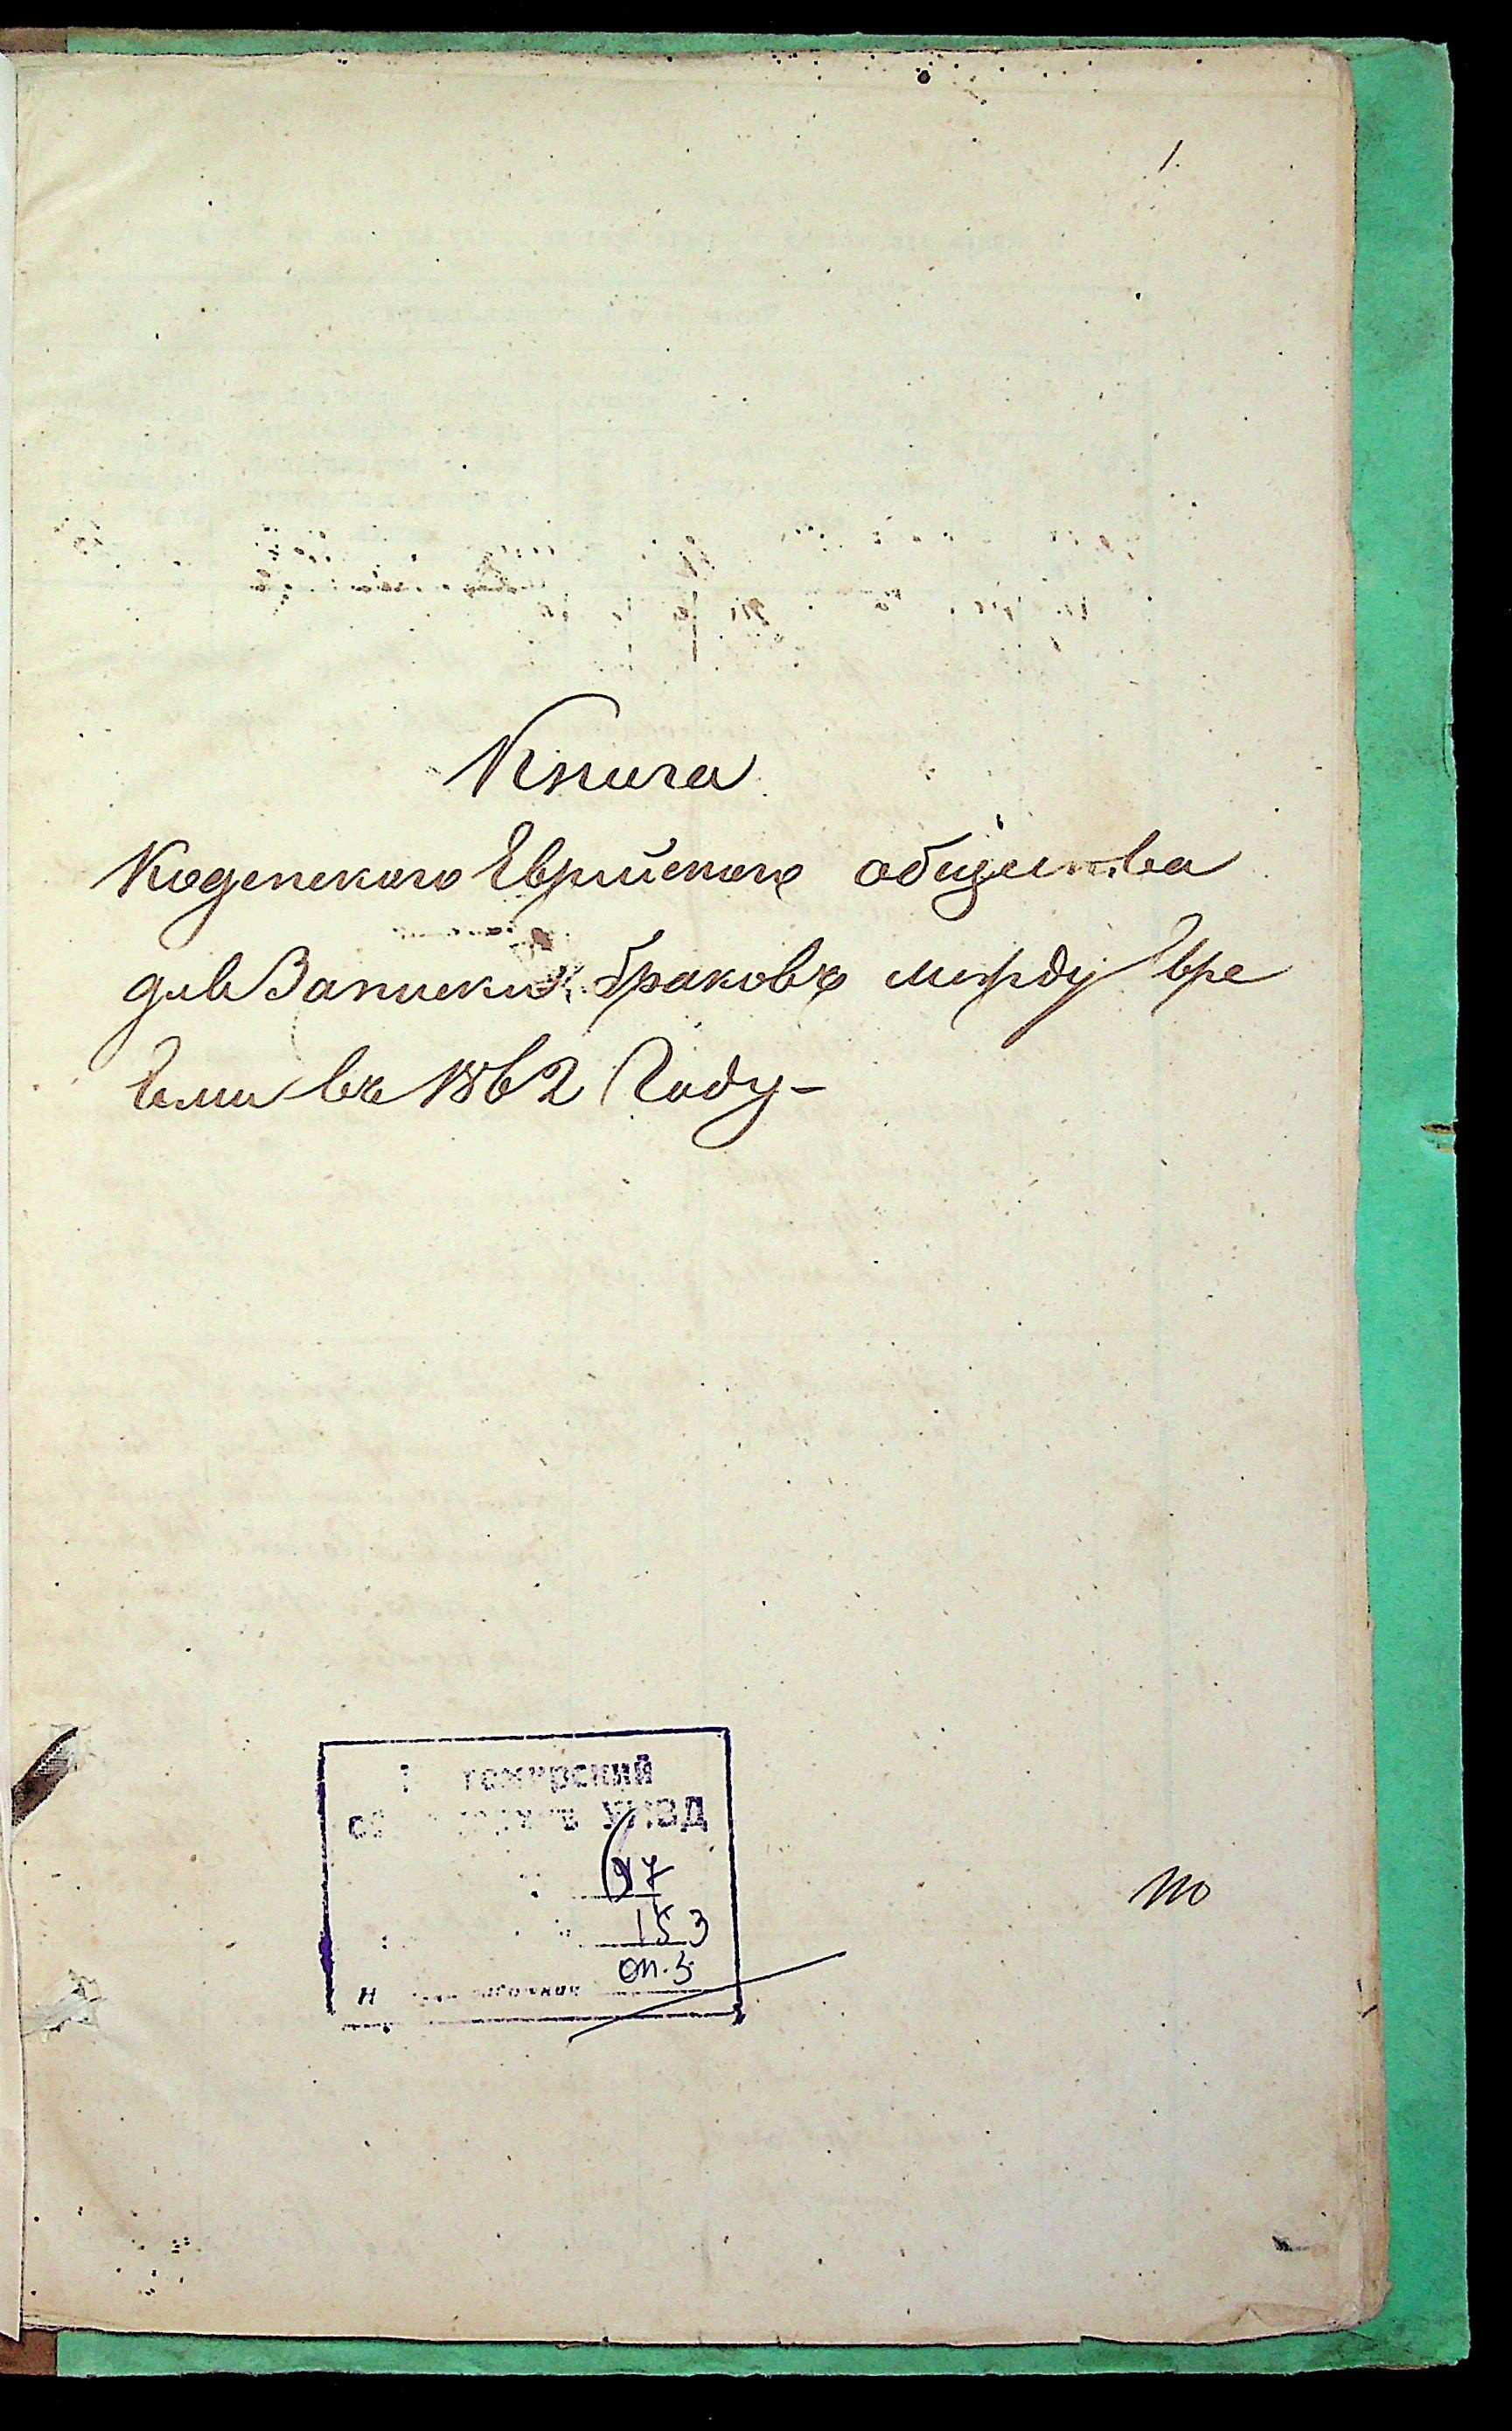 1.
Книга
Коденского Еврейского общества
для Записки браковъ между Евре
ями въ 1862 Году -
томирский
УНВД
67
153
оп. 3